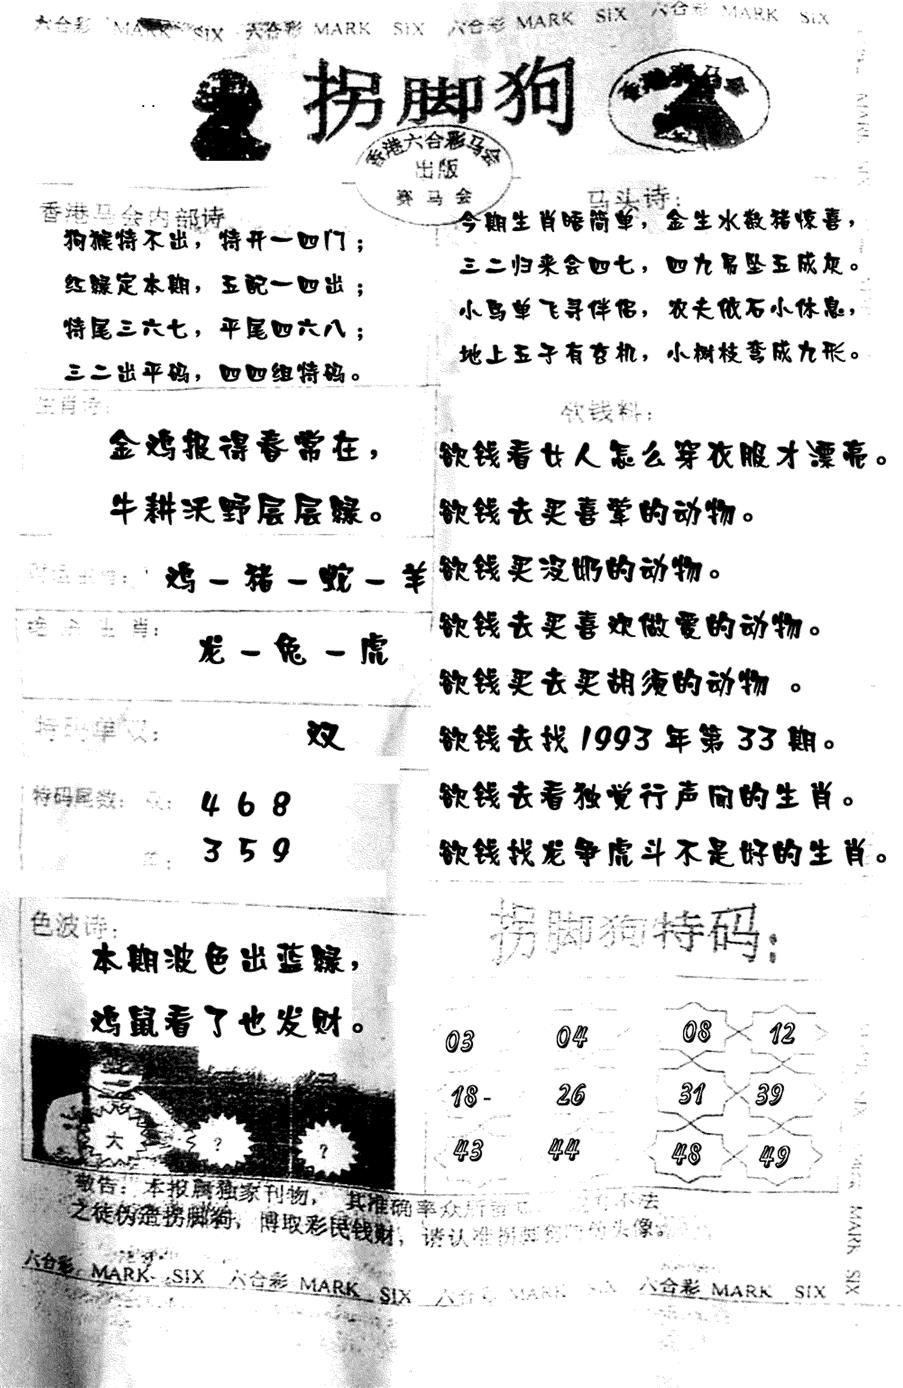 六合彩 MARK SIX 六合彩 MARK SIX 六合彩 MARK SIX 六合彩 MARK SIX
拐脚狗
香港六合彩马会
出版
赛马会
香港赛马会
香港马会内部诗
狗猴特不出，特开一四门；
红绿定本期，五配一四出；
特尾三六七，平尾四六八；
三二出平码，四四组特码。
马头诗：
今期生肖唔简单，金生水数猪惊喜，
三二归来会四七，四九吊坠五成灰。
小鸟单飞寻伴侣，农夫依石小休息，
地上五子有玄机，小树枝弯成九形。
生肖诗：
金鸡报得春常在，
牛耕沃野层层绿。
鸡－猪－蛇－羊
绝杀生肖：
龙－兔－虎
特码单双：
双
特码尾数：双：
4 6 8
单：
3 5 9
欲钱料：
欲钱看女人怎么穿衣服才漂亮。
欲钱去买喜荤的动物。
欲钱买没奶的动物。
欲钱去买喜欢做爱的动物。
欲钱买去买胡须的动物 。
欲钱去找1993年第33期。
欲钱去看独觉行声闻的生肖。
欲钱找龙争虎斗不是好的生肖。
色波诗：
本期波色出蓝绿，
鸡鼠看了也发财。
大 ? ?
拐脚狗特码：
03 04 08 12
18- 26 31 39
43 44 48 49
敬告：本报属独家刊物， 其准确率众所 不法
之徒伪造拐脚狗，博取彩民钱财，请认准拐脚狗 的头像。
六合彩 MARK SIX 六合彩 MARK SIX 六合彩 MARK SIX 六合彩 MARK SIX
MARK SIX